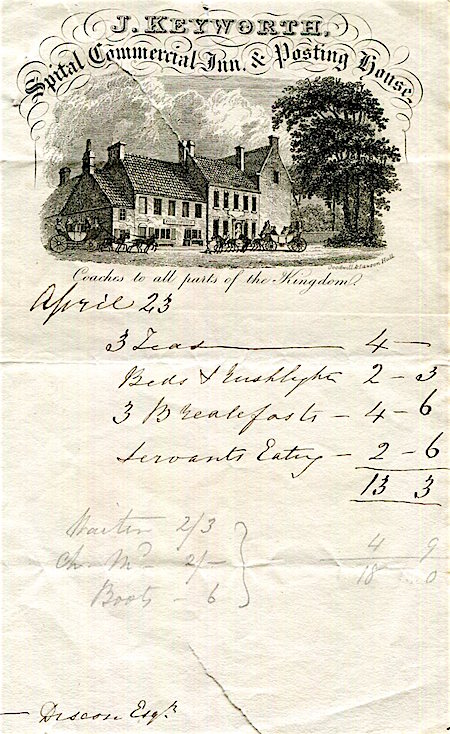 J. KEYWORTH,
Spital Commercial Inn, & Posting House.
Goodwill & Lawson, Hull
Coaches to all parts of the Kingdom.
April 23
3 Teas — 4 —
Beds & Rushlights 2 - 3
3 Breakfasts - 4 - 6
Servants Eating - 2 - 6
13 3
Waiter 2/3
Ch. Md 2/- 4 9
Boots - 6 18 0
Esqr.